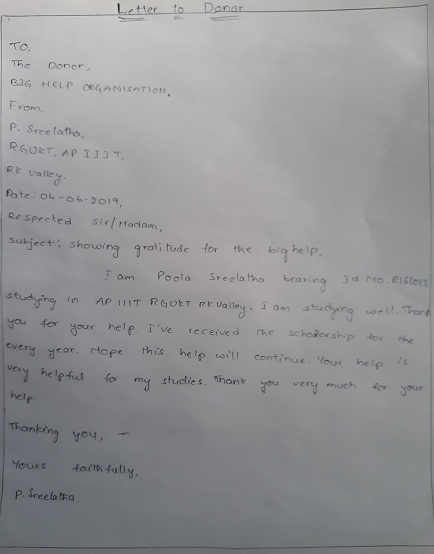 Letter to Donar
TO,
The Donor,
BIG HELP ORGANISATION.
From,
P. Sreelatha,
RGUKT, AP IIIT,
RK valley.
Date: 04-06-2019,
Respected sir/Madam,
Subject: showing gratitude for the big help.
I am Poola Sreelatha bearing id NO. R161013
studying in AP IIIT RGUKT RK valley. I am studying well. Thank
you for your help. I've received the scholorship for the
every year. Hope this help will continue. Your help is
very helpful for my studies. Thank you very much for your
help.
Thanking you, -
Yours faithfully,
P. Sreelatha.